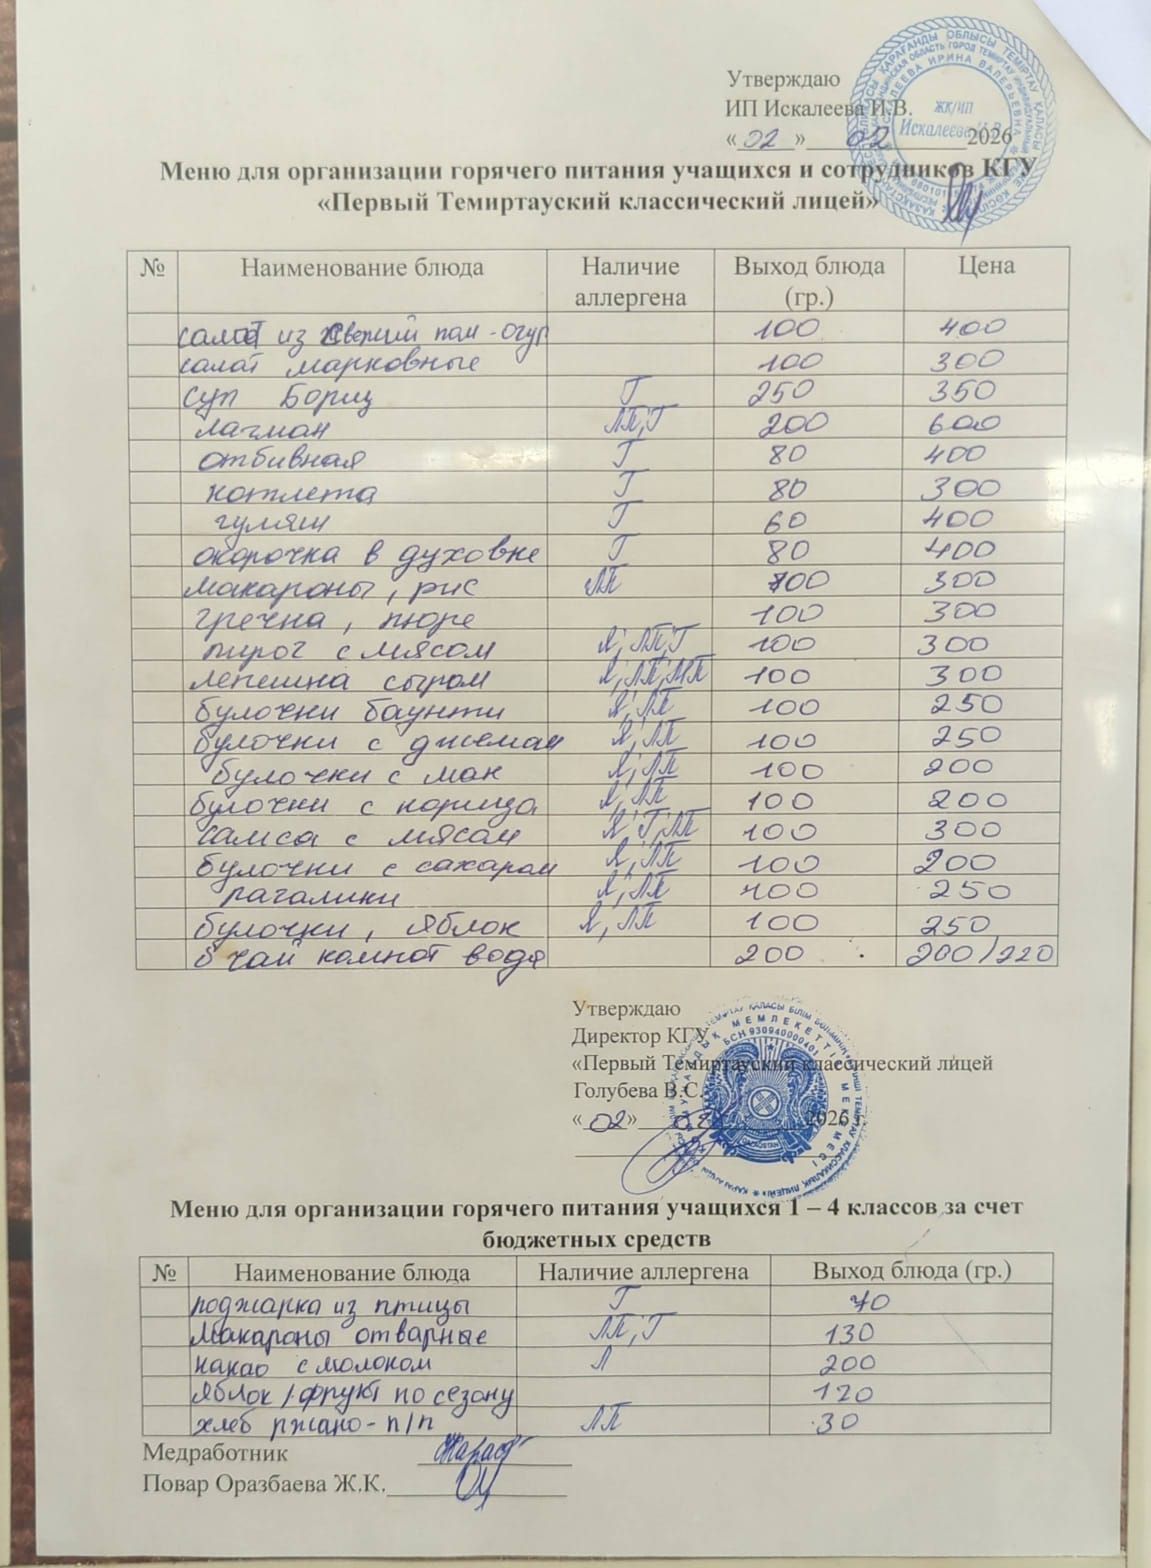 Утверждаю
ИП Искалеева И.В.
«02» 02 2026
ЖК/ИП
Искалеева И.В.
Меню для организации горячего питания учащихся и сотрудников КГУ
«Первый Темиртауский классический лицей»
№ Наименование блюда Наличие аллергена Выход блюда (гр.) Цена
салат из свежий пом-огур 100 400
салат марковные 100 300
суп Борщ Г 250 350
лагман ЛП,Г 200 600
отбивная Г 80 400
котлета Г 80 300
гуляш Г 60 400
окорочка в духовке Г 80 400
макароны, рис ЛП 100 300
гречка, пюре 100 300
пирог с мясом Я,ЛП,Г 100 300
лепешка сыром Я,ЛП,МП 100 300
булочки баунти Я,ЛП 100 250
булочки с джемам Я,ЛП 100 250
булочки с мак Я,ЛП 100 200
булочки с корица Я,ЛП 100 200
самса с мясам Я,Г,ЛП 100 300
булочки с сахаром Я,ЛП 100 200
рагалики Я,ЛП 100 250
булочки, яблок Я,ЛП 100 250
чай компот вода 200 200/220
Утверждаю
Директор КГУ
«Первый Темиртауский классический лицей
Голубева В.С.
«02» 02 2026 г.
БСН 930940000401
Меню для организации горячего питания учащихся 1 – 4 классов за счет
бюджетных средств
№ Наименование блюда Наличие аллергена Выход блюда (гр.)
поджарка из птицы Г 70
Макароны отварные ЛП,Г 130
какао с молоком Л 200
яблок/фрукт по сезону 120
хлеб ржано-п/п ЛП 30
Медработник
Повар Оразбаева Ж.К.